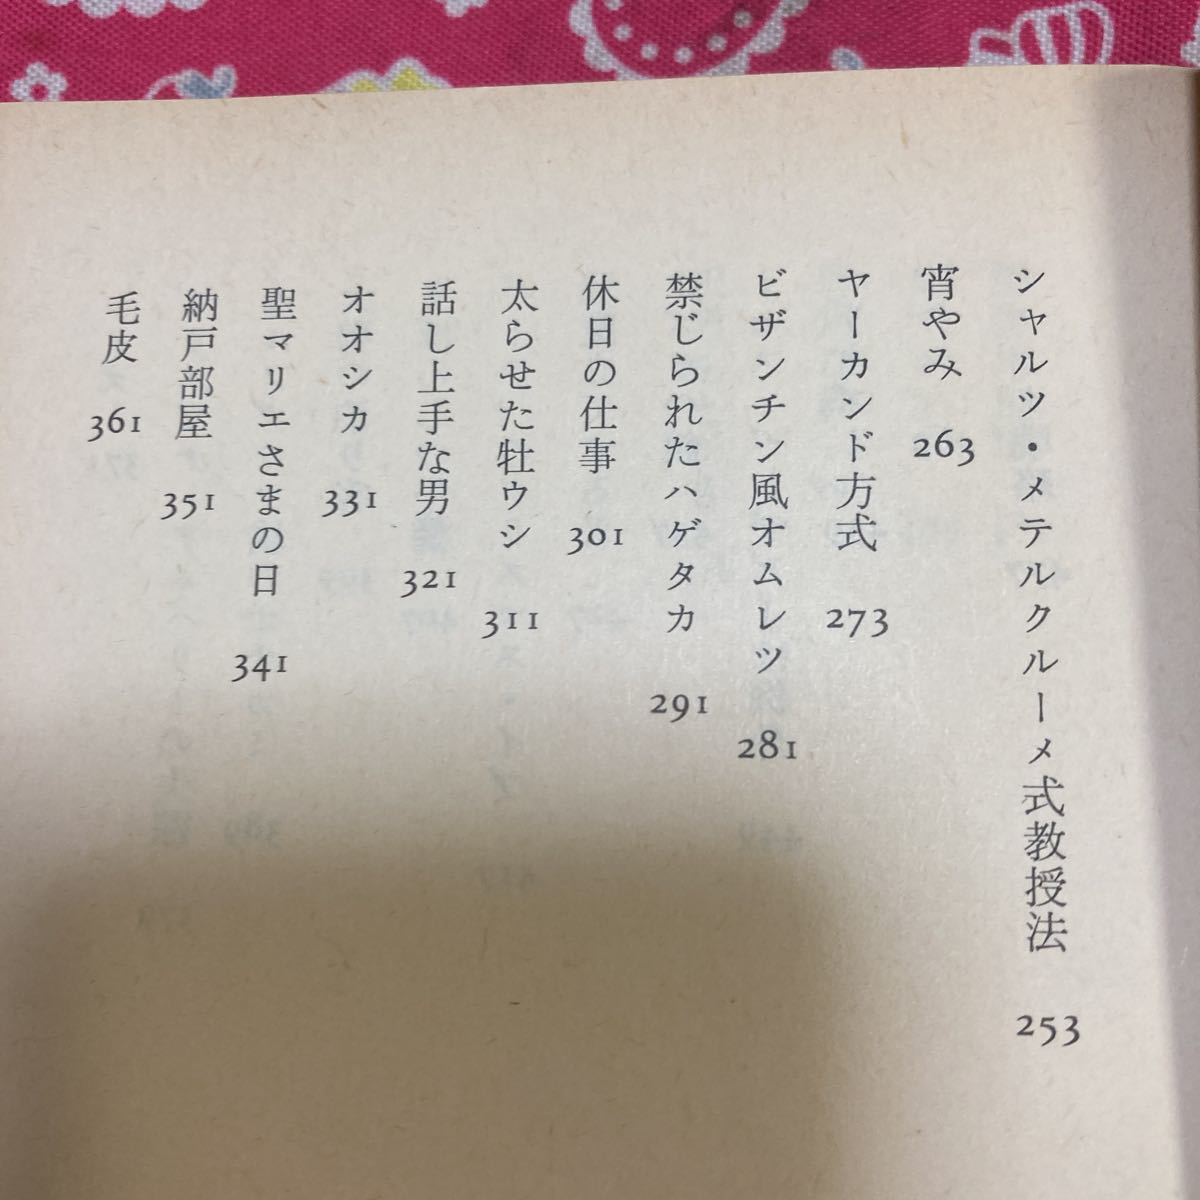 シャルツ・メテルクルーメ式教授法 253
宵やみ 263
ヤーカンド方式 273
ビザンチン風オムレツ 281
禁じられたハゲタカ 291
休日の仕事 301
太らせた牡ウシ 311
話し上手な男 321
オオシカ 331
聖マリエさまの日 341
納戸部屋 351
毛皮 361